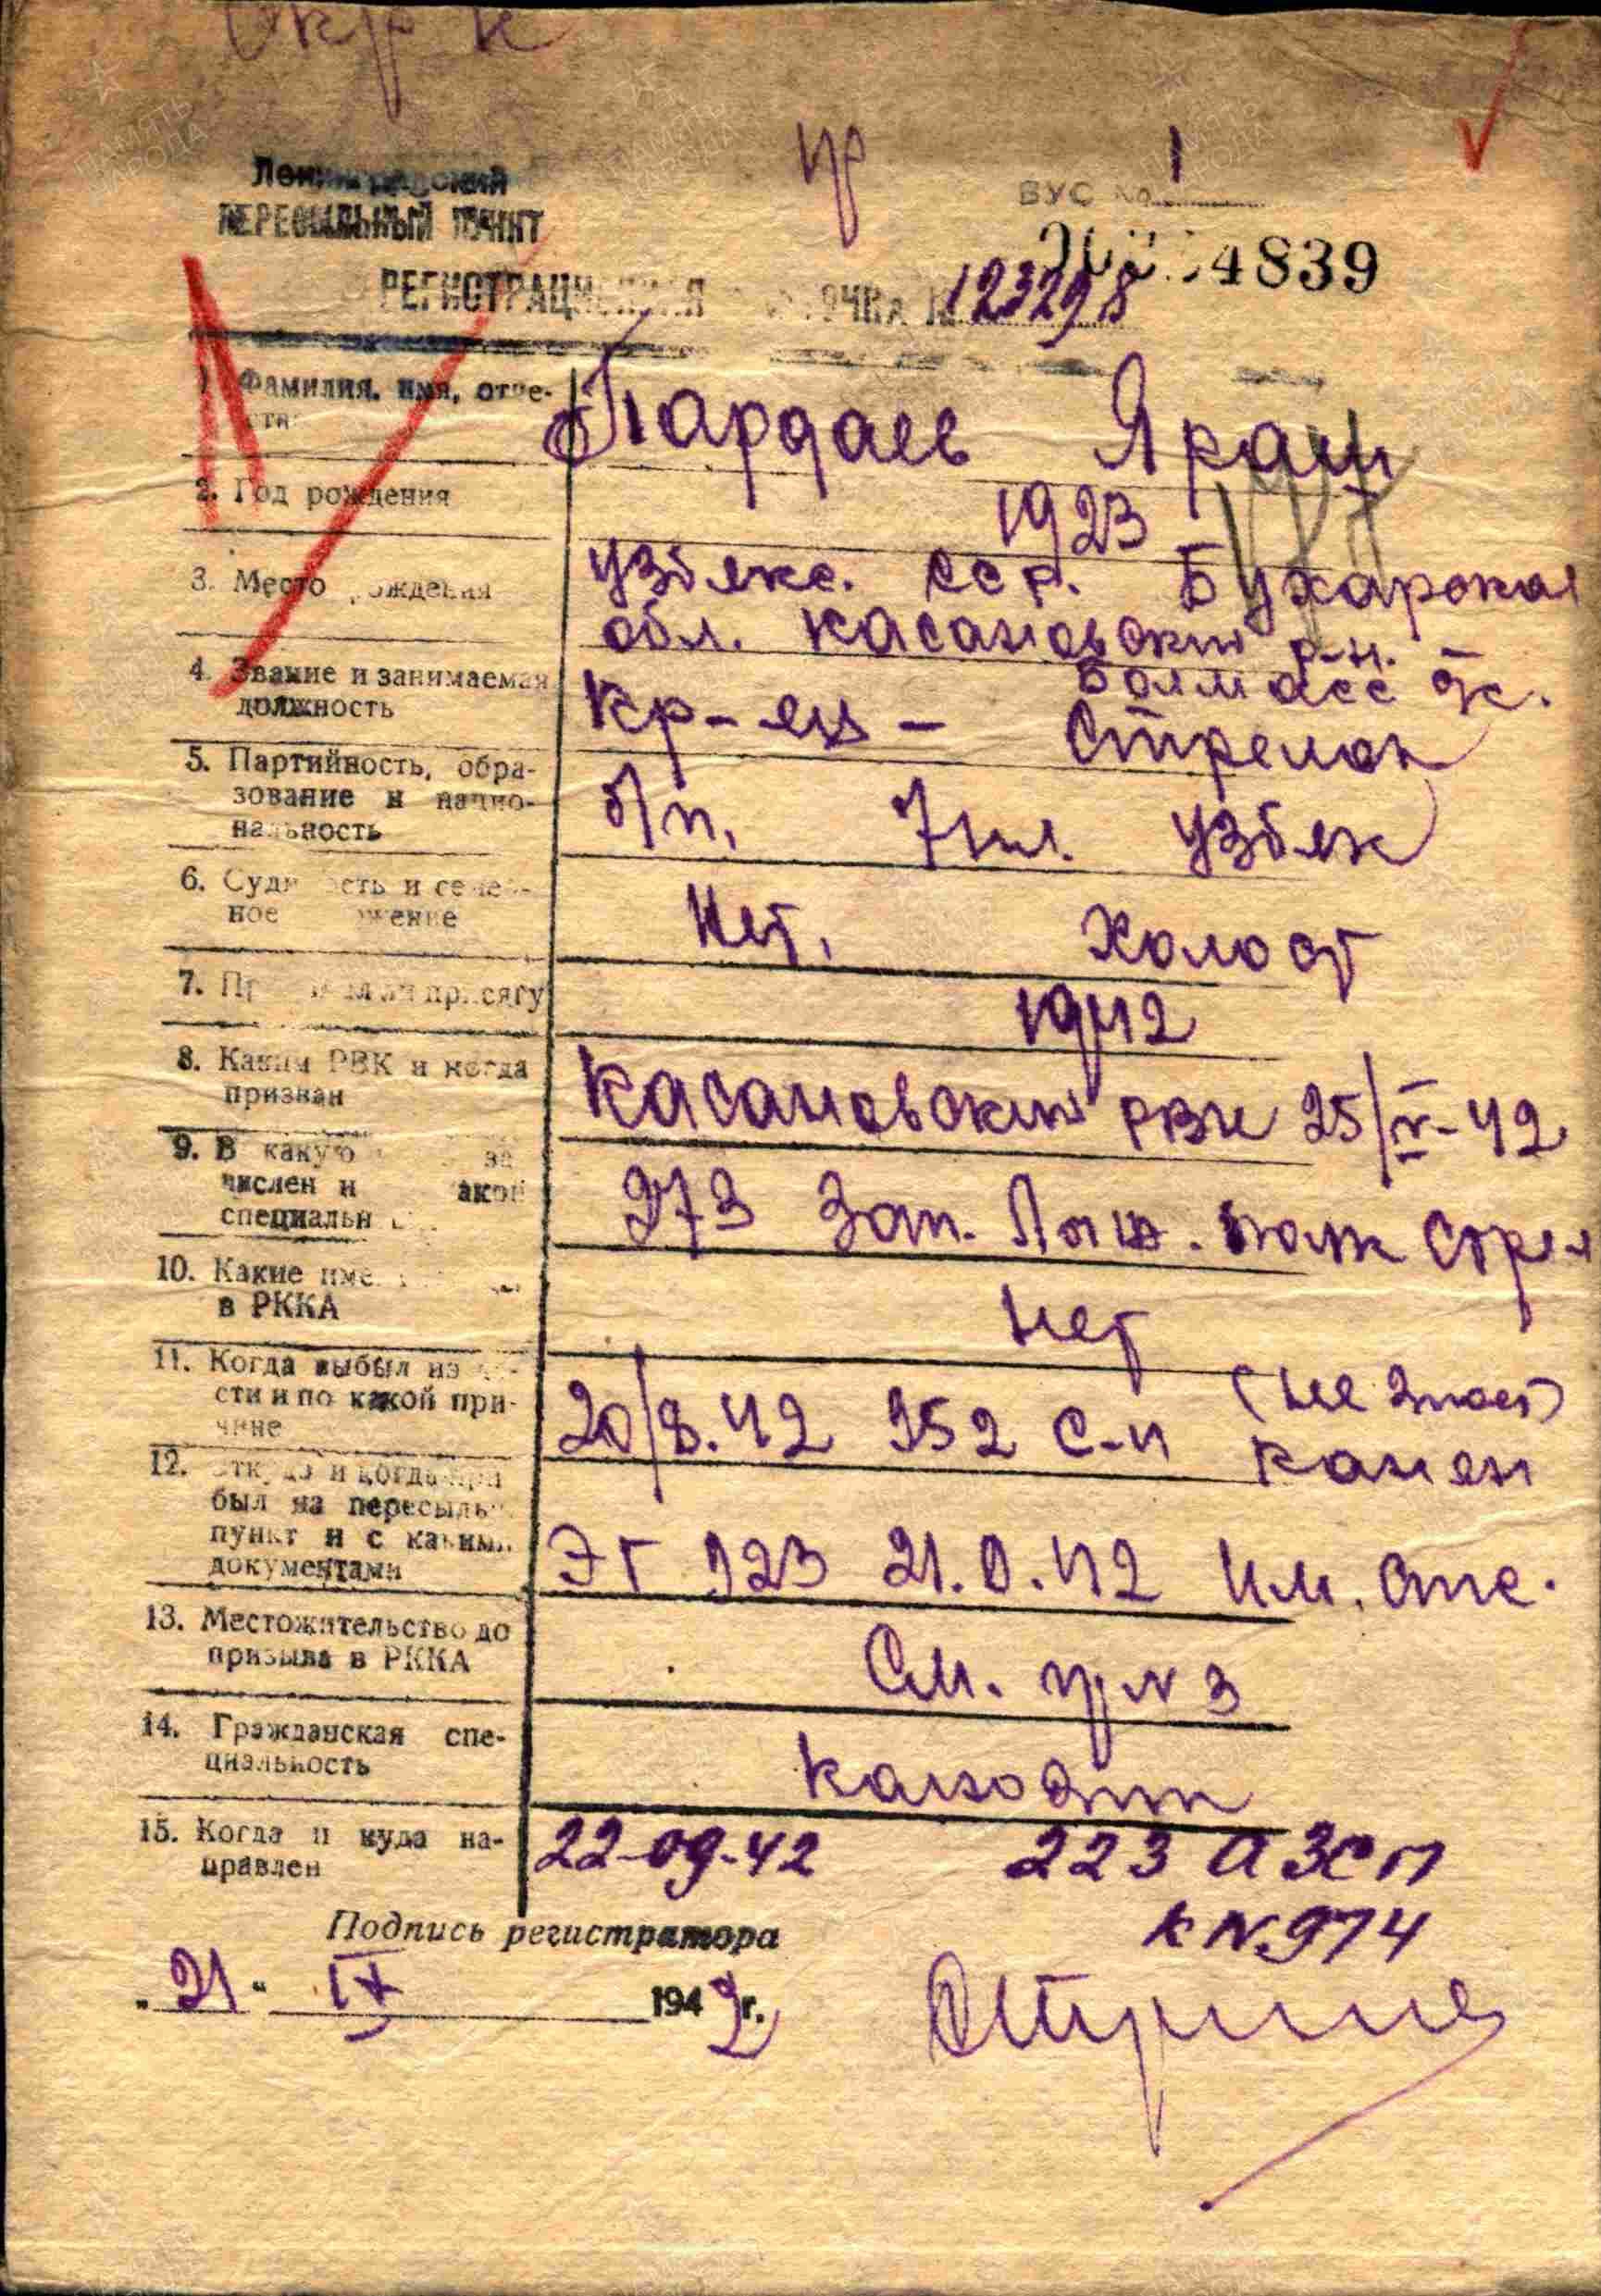 Окр к
пр
1
Ленинградский
ПЕРЕСЫЛЬНЫЙ ПУНКТ
ВУС №
4839
РЕГИСТРАЦИОННАЯ КАРТОЧКА № 123298
1. Фамилия, имя, отче-
ство
Пардаев Яраш
2. Год рождения
1923
3. Место рождения
Узбекс. ССР. Бухарская
обл. Касановский р-н.
4. Звание и занимаемая
должность
кр-ец - Стрелок
5. Партийность, обра-
зование и нацио-
нальность
б/п. 7 кл. узбек
6. Судимость и семей-
ное положение
Нет. Холост
7. Принимал ли присягу
1942
8. Каким РВК и когда
призван
Касановский РВК 25/IV-42
9. В какую за
числен и акой
специальн
973 Зап. Лыж. полк Стрел
10. Какие име
в РККА
Нет
11. Когда выбыл из ча-
сти и по какой при-
чине
20/8.42 952 с-п (не знает)
12. Откуда и когда при
был на пересыльн
пункт и с какими
документами
ЭГ 923 21.9.42 Им. отс.
13. Местожительство до
призыва в РККА
См. пр № 3
14. Гражданская спе-
циальность
15. Когда и куда на-
правлен
22-09-42 223 АЗСП
к № 974
Подпись регистратора
„21“ IX 1942 г.